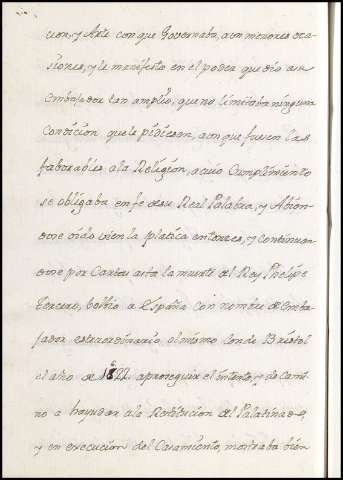 cion, y Arte con que Governaba, aun menores oca
siones, y le manifesto en el poder que dio a su
Embajador tan amplio, que no limitaba ninguna
Condicion que le pidiesen, aunque fuesen las
faborables a la Religion, a cuio Cumplimiento
se obligaba en fe de su Real Palabra, y Abien
dose oido vien la platica entonces, y continuan
dose por Cartas asta la muerte del Rey Phelipe
tercero, bolbio a España con nombre de Emba
jador extraordinario el mismo Conde Bristol
el año de 1622 a proseguir el intento, y de Cami
no a hayudar a la Restitucion del Palatinado,
y en execucion del Casamiento, mostraba bien